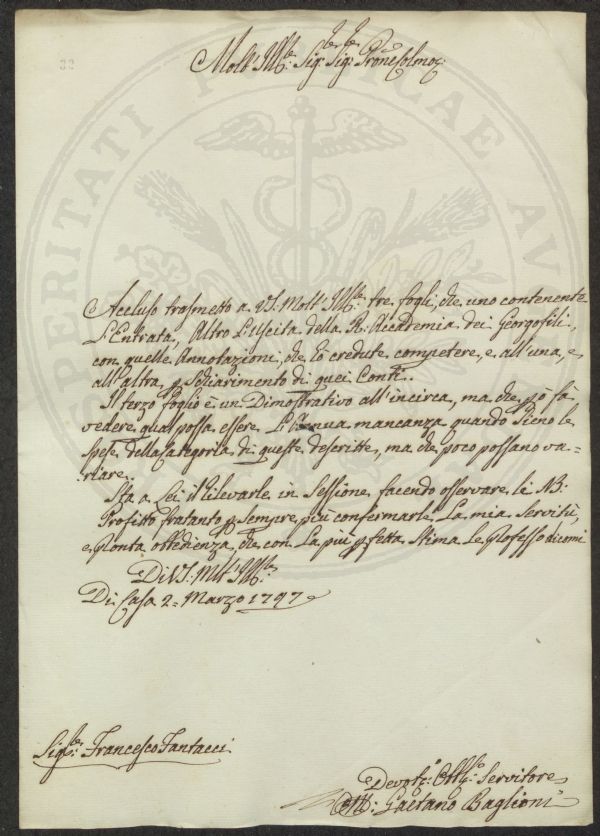 33
Molt' Ill.re Sig.re Sig.re Prône Colmo:
Accluso trasmetto a VS. Molt' Ill.re tre fogli, che uno contenente
L'Entrata, Altro L'uscita della R. Accademia dei Georgofili,
con quelle Annotazioni, che ho credute competere, e all'una, e
all'altra p schiarimento di quei Conti.
Il terzo foglio è un Dimostrativo all'incirca, ma che può fà
vedere qual possa essere L'annua mancanza quando sieno le
spese della Categoria di queste descritte, ma che poco possano va=
riare.
Sta a Lei il rilevarle in Sessione facendo osservare li NB:
Profitto fratanto p sempre più confermarle La mia servitù,
e pronta obbedienza, che con La più pfetta stima Le professo dicomi
Di VS: Mlt' Ill.re
Di Casa 2= Marzo 1797
Sig.re: Francesco Fantacci
Devot.o Obb.o Servitore
Gaetano Baglioni
SPERITATI PUBLICAE